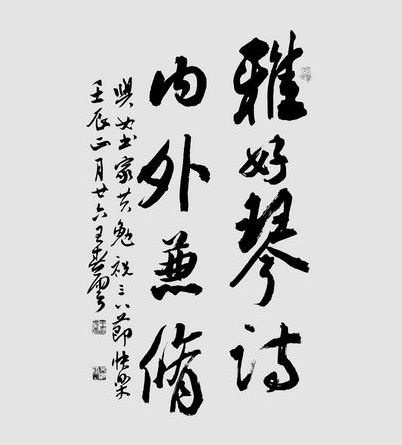 雅好琴詩
内外兼脩
與女書家共勉祝三八節快樂
壬辰正月廿六王春雲